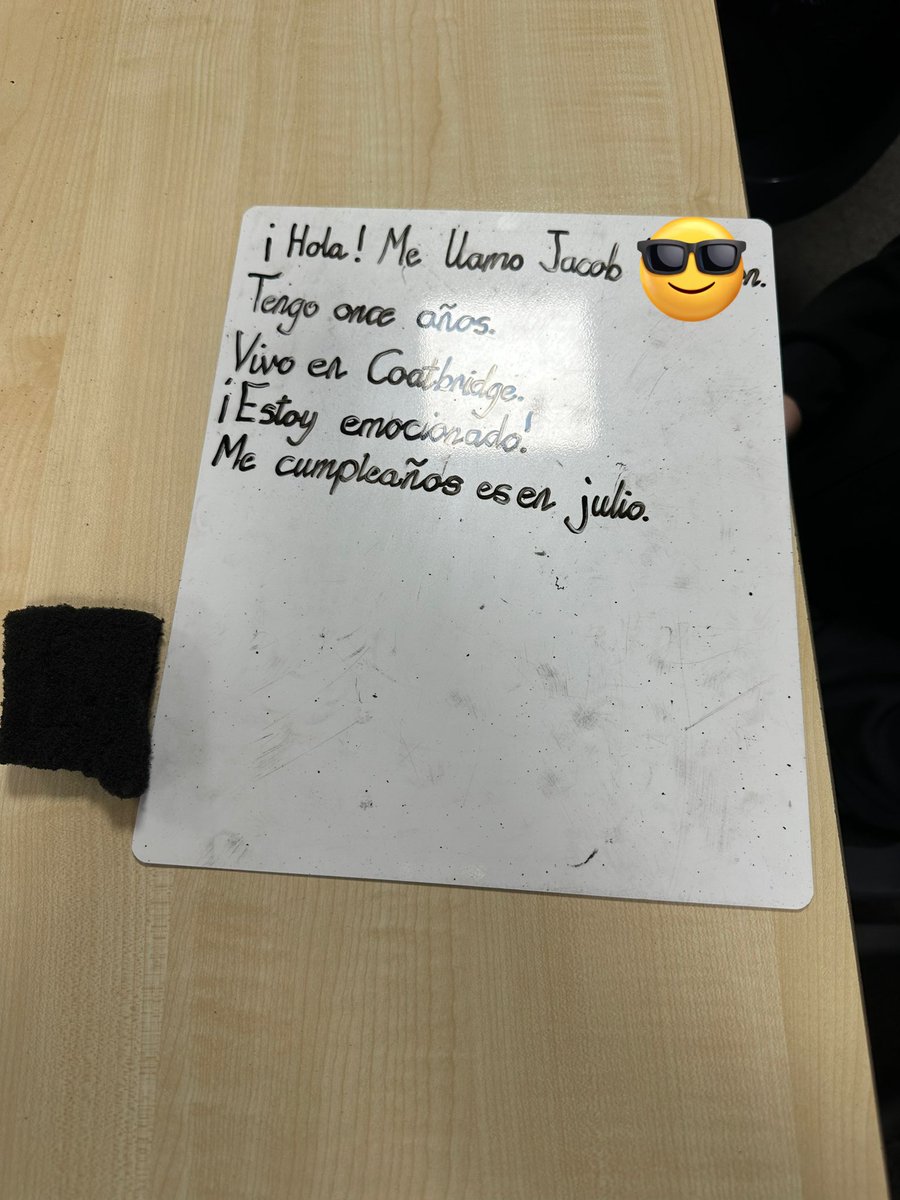 ¡Hola! Me llamo Jacob
Tengo once años.
Vivo en Coatbridge.
¡Estoy emocionado!
Me cumpleaños es en julio.